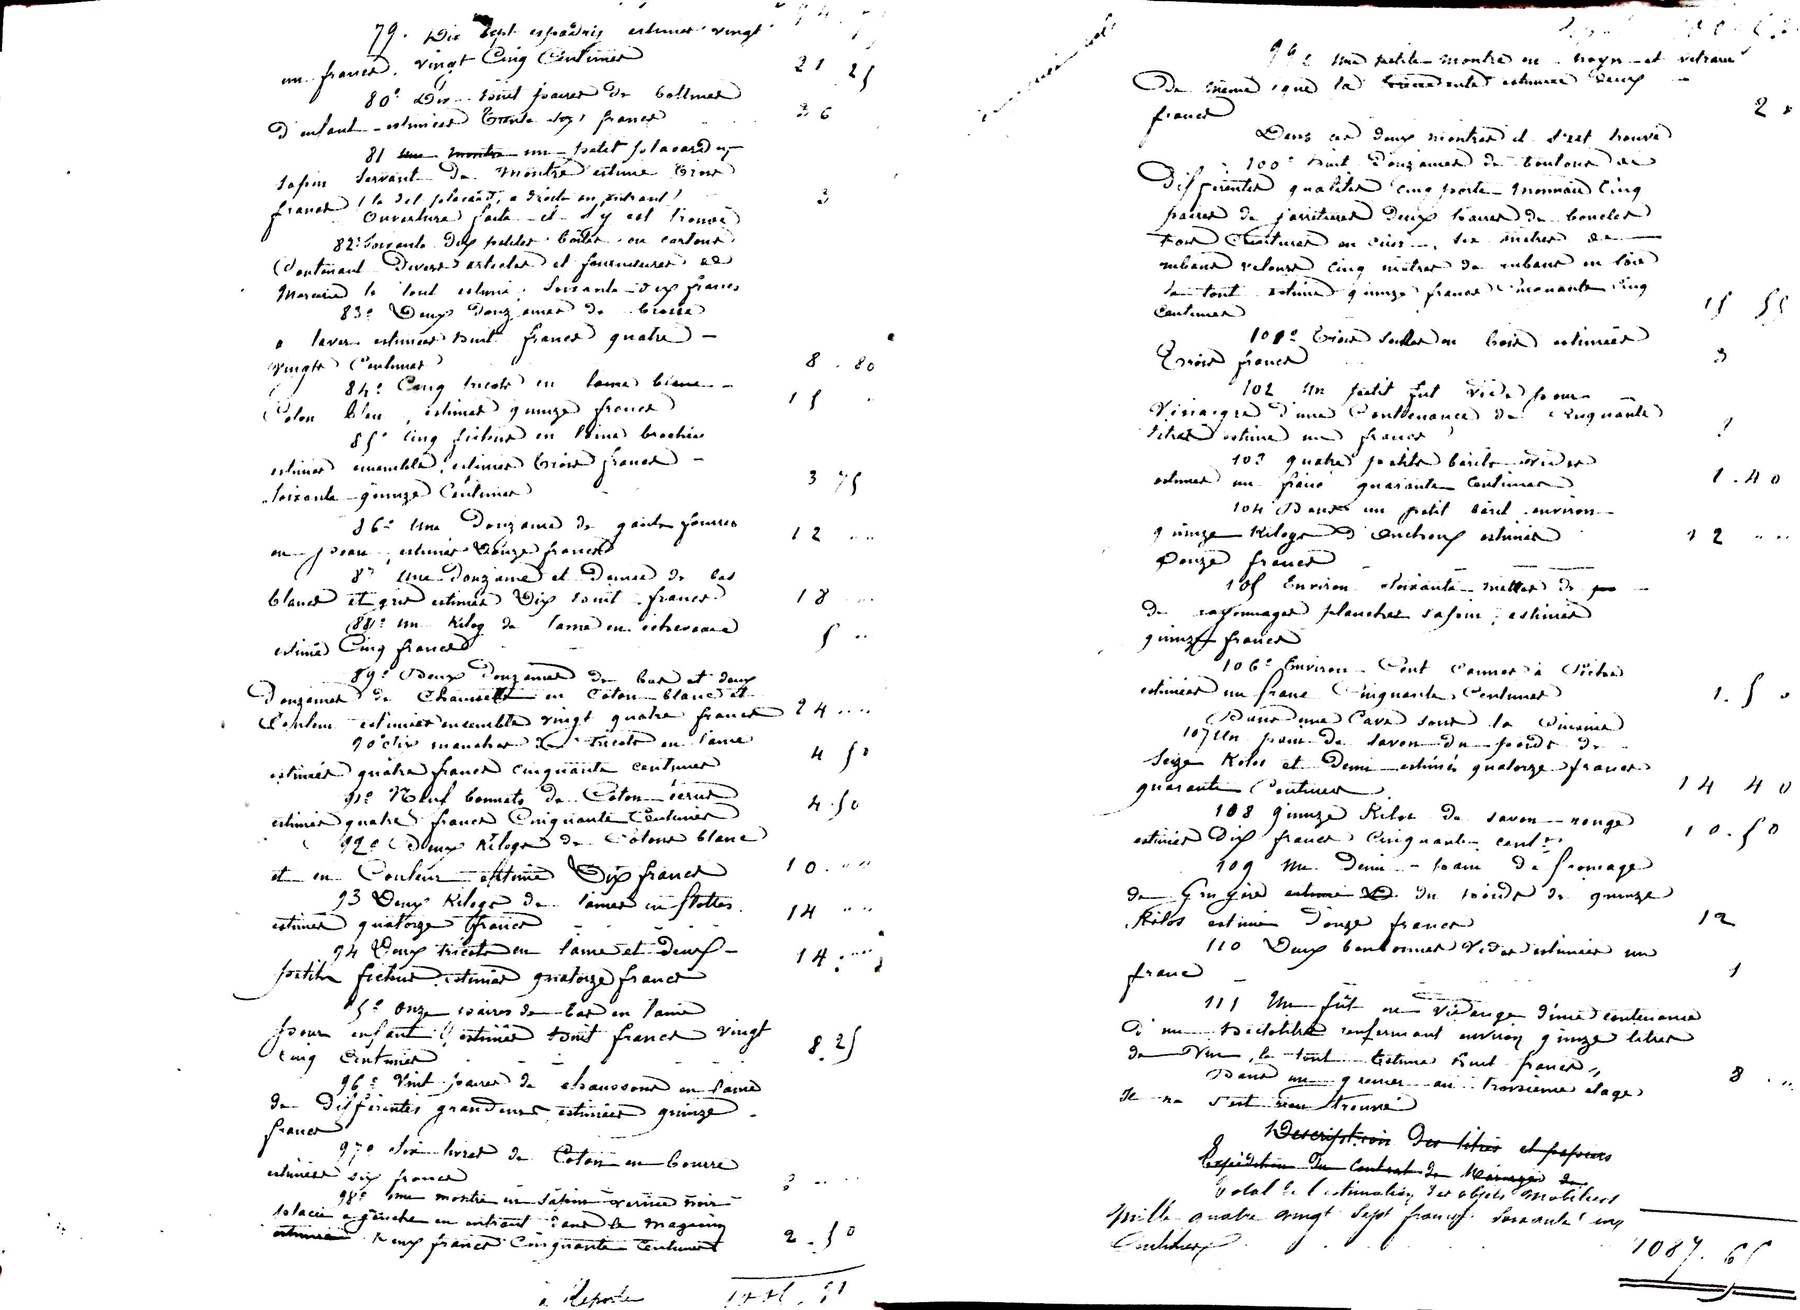 79. Dix sept espadris estimés vingt
un francs, vingt cinq centimes 21 25
80° Dix huit paires de bottines
d'enfant estimées trente six francs 36
81 une montre un petit placard en
sapin servant de montre estimé trois
francs (le dit placard, à droite en entrant) 3
Ouverture faite il s'y est trouvé
82° Soixante dix petites boîtes ou cartons
contenant divers articles et fournitures de
Mercerie le tout estimé soixante-dix francs
83° Deux douzaines de brosses
à laver estimées huit francs quatre
vingts centimes 8. 80
84° Cinq tricots en laine
coton bleu, estimés quinze francs 15
85° Cinq fichus en laine brochés
estimés ensemble, estimés trois francs
soixante quinze centimes 3 75
86° Une douzaine de gants fourrés
en peau, estimés douze francs 12 ...
87 Une douzaine et demie de bas
blancs et gris estimés dix huit francs 18 ...
88° un kilog de laine en
estimé cinq francs 5 ..
89° Deux douzaines de bas et deux
douzaines de chaussettes en coton blanc et
couleur estimées ensemble vingt quatre francs 24 ....
90° Six manches de tricots en laine
estimés quatre francs cinquante centimes 4 50
91° Neuf bonnets de coton écrus
estimés quatre francs cinquante centimes 4.50
92° Deux kilogs de cotons blanc
et en couleur estimés dix francs 10. ....
93 Deux kilogs de laines en flottes
estimés quatorze francs 14 ....
94 Deux tricots en laine et deux
petits fichus estimés quatorze francs 14. ...
95° Onze paires de bas en laine
pour enfant, estimées huit francs vingt
cinq centimes 8. 25
96° Vint paires de chaussons en laine
de différentes grandeurs estimées quinze
francs
97° Six livres de coton en bourre
estimées six francs
98° une montre en sapin vernie noir
placée à gauche en entrant dans le magasin
estimée deux francs cinquante centimes 2. 50
à Reporter
99° une petite montre en noyer et vitrau
de même que la précédente estimée deux
francs 2
Dans ces deux montres il s'est trouvé
100° Huit douzaines de boutons de
différentes qualités cinq porte monnaie cinq
paires de jarretières deux paires de boucles
trois ceintures en cuir, six mètres de
rubans velours cinq mètres de rubans en soie
le tout estimé quinze francs cinquante cinq
centimes 15 55
101° Trois seilles en bois estimées
trois francs 3
102 Un petit fut vide pour
vinaigre d'une contenance de cinquante
litres estimé un franc
103 quatre petits barils vides
estimés un franc quarante centimes 1. 40
104 Dans un petit baril environ
quinze kilogs d'anchois estimés 12 ....
douze francs
105 Environ soixante mètres de
de rayonnages planches sapin, estimés
quinze francs
106° Environ cent cannes à pêche
estimées un franc cinquante centimes 1. 50
Dans une cave sous la cuisine
107 Un pain de savon du poids de
seize kilos et demi estimés quatorze francs
quarante centimes 14 40
108 quinze kilos de savon rouge
estimés dix francs cinquante cent. 10. 50
109 Un demi pain de fromage
de Gruyère estimé du poids de quinze
kilos estimé douze francs 12
110 Deux bonbonnes vides estimées un
franc 1
111 Un fût en vidange d'une contenance
d'un hectolitre renfermant environ quinze litres
de vin, le tout estimé huit francs 8 . ..
Dans un grenier au troisième étage
il ne s'est rien trouvé
Description des titres et papiers
Expédition du contrat de Mariage de
Total de l'estimation des objets mobiliers
mille quatre vingt sept francs soixante cinq
centimes 1087. 65